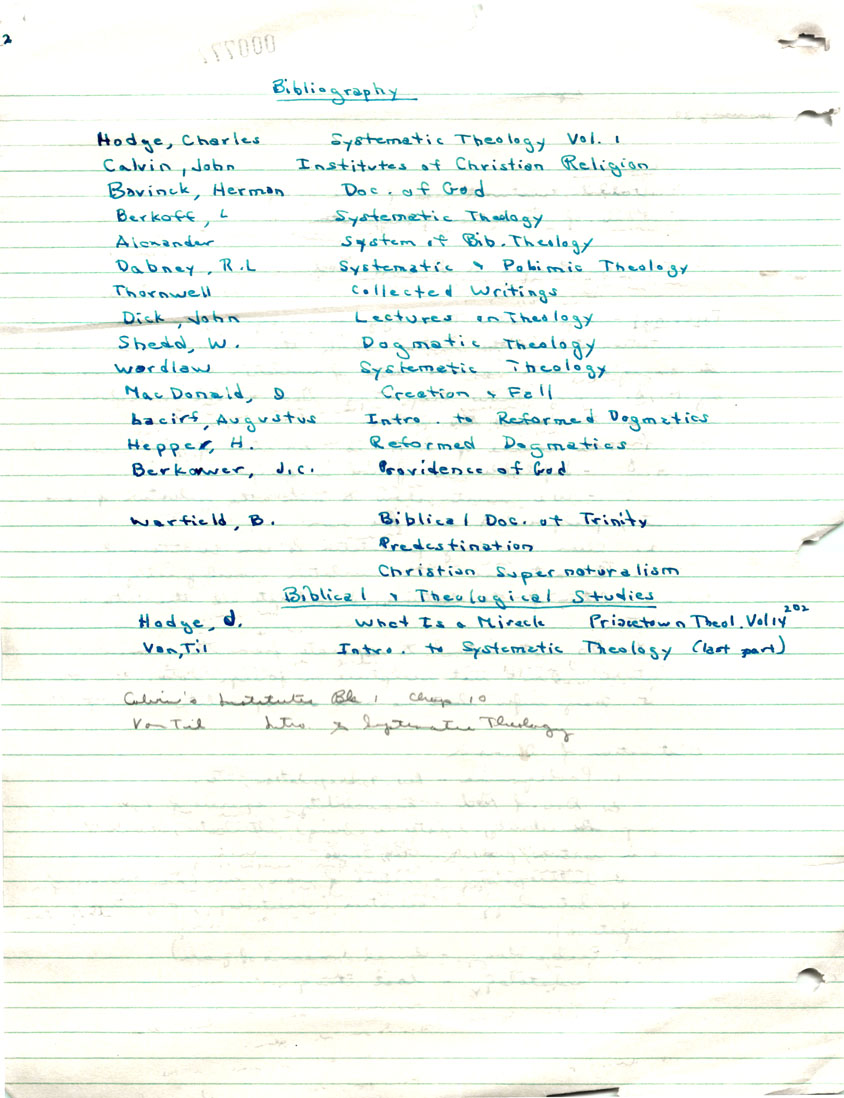 2
000777
Bibliography
Hodge, Charles Systematic Theology Vol. 1
Calvin, John Institutes of Christian Religion
Bavinck, Herman Doc. of God
Berkoff, L Systematic Theology
Alexander System of Bib. Theology
Dabney, R.L Systematic & Polimic Theology
Thornwell Collected Writings
Dick, John Lectures on Theology
Shedd, W. Dogmatic Theology
Wardlaw Systemetic Theology
MacDonald, D Creation & Fall
Augustus Intro. to Reformed Dogmatics
Hepper, H. Reformed Dogmatics
Berkower, J.C. Providence of God
Warfield, B. Biblical Doc. of Trinity
Predestination
Christian Supernaturalism
Biblical & Theological Studies
Hodge, d. What Is a Miracle Princetown Theol. Vol 14 202
Van, Til Intro. to Systematic Theology (last part)
Calvin's Institutes Bk 1 Chap 10
Van Til Intro to Systematic Theology